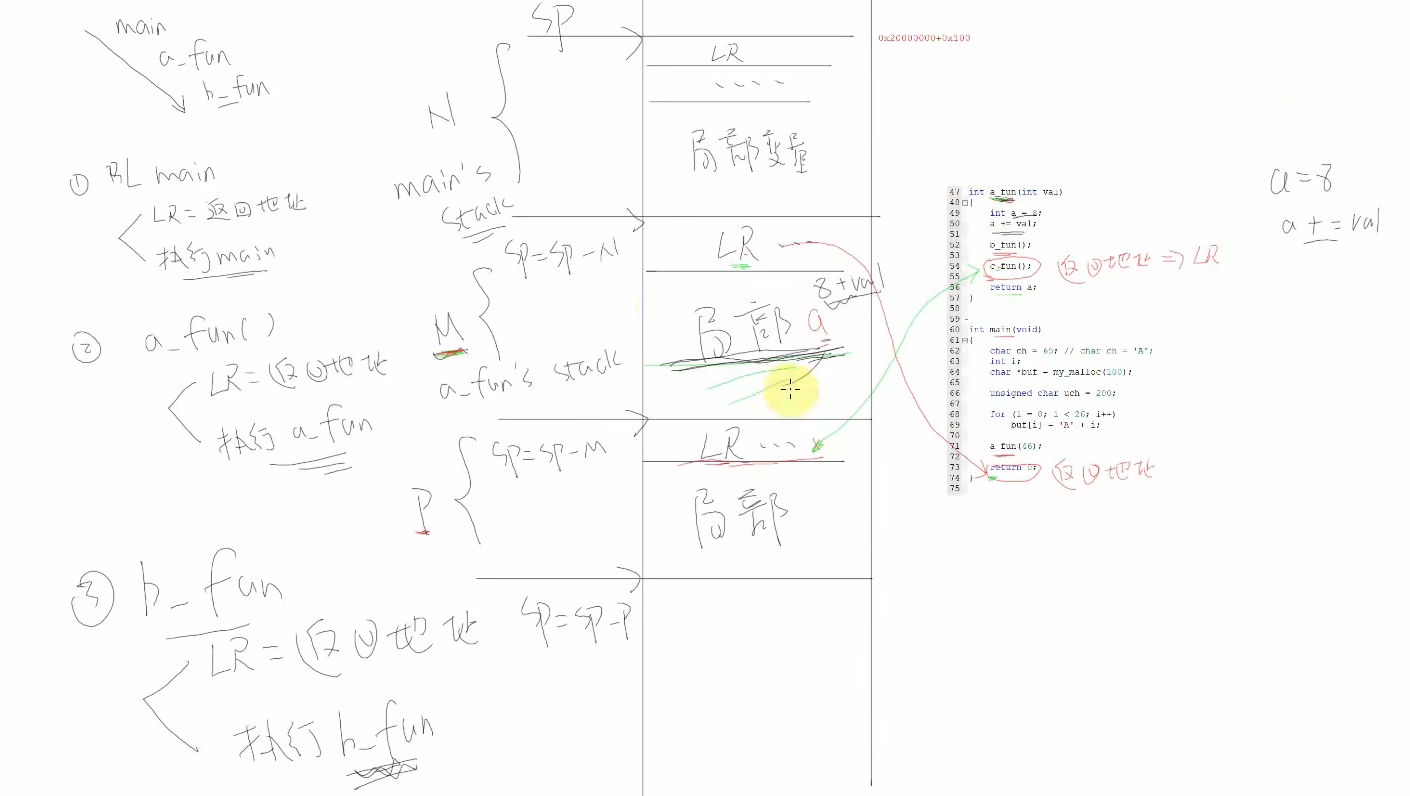 main
a_fun
b_fun
① BL main
LR=返回地址
执行main
② a_fun()
LR=返回地址
执行 a_fun
③ b_fun
LR=返回地址
执行 b_fun
SP
N
main's
stack
SP=SP-N
M
a_fun's stack
SP=SP-M
P
SP=SP-P
0x20000000+0x100
LR
....
局部变量
LR
8+val
局部 a
LR ...
局部
47 int a_fun(int val)
48 {
49 int a = 8;
50 a += val;
51
52 b_fun();
53
54 c_fun();
55
56 return a;
57 }
58
59
60 int main(void)
61 {
62 char ch = 65; // char ch = 'A';
63 int i;
64 char *buf = my_malloc(100);
65
66 unsigned char uch = 200;
67
68 for (i = 0; i < 26; i++)
69 buf[i] = 'A' + i;
70
71 a_fun(46);
72
73 return 0;
74 }
75
返回地址 => LR
返回地址
a=8
a+=val